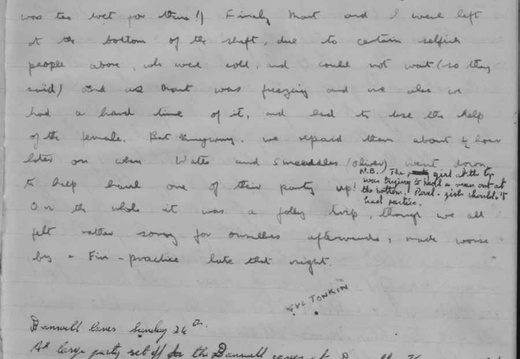 was too wet for three!! Finally Mort and I were left
at the bottom of the shaft, due to certain selfish
people above, who were cold, and could not wait (so they
said) and as Mort was freezing and we also we
had a hard time of it, and had to use the help
of the female. But anyway we repaid them about ½ hour
later on when Watts and (Oliver) went down
to help haul one of their party up!
N.B. The girl at the top
was trying to haul a man out at
the bottom. Moral - girls shouldn't
lead parties.
On the whole it was a jolly trip, though we all
felt rather sorry for ourselves afterwards, made worse
by a Fire-practice late that night.
TONKIN
Banwell Caves Sunday 24th.
A large party set off for the Banwell caves